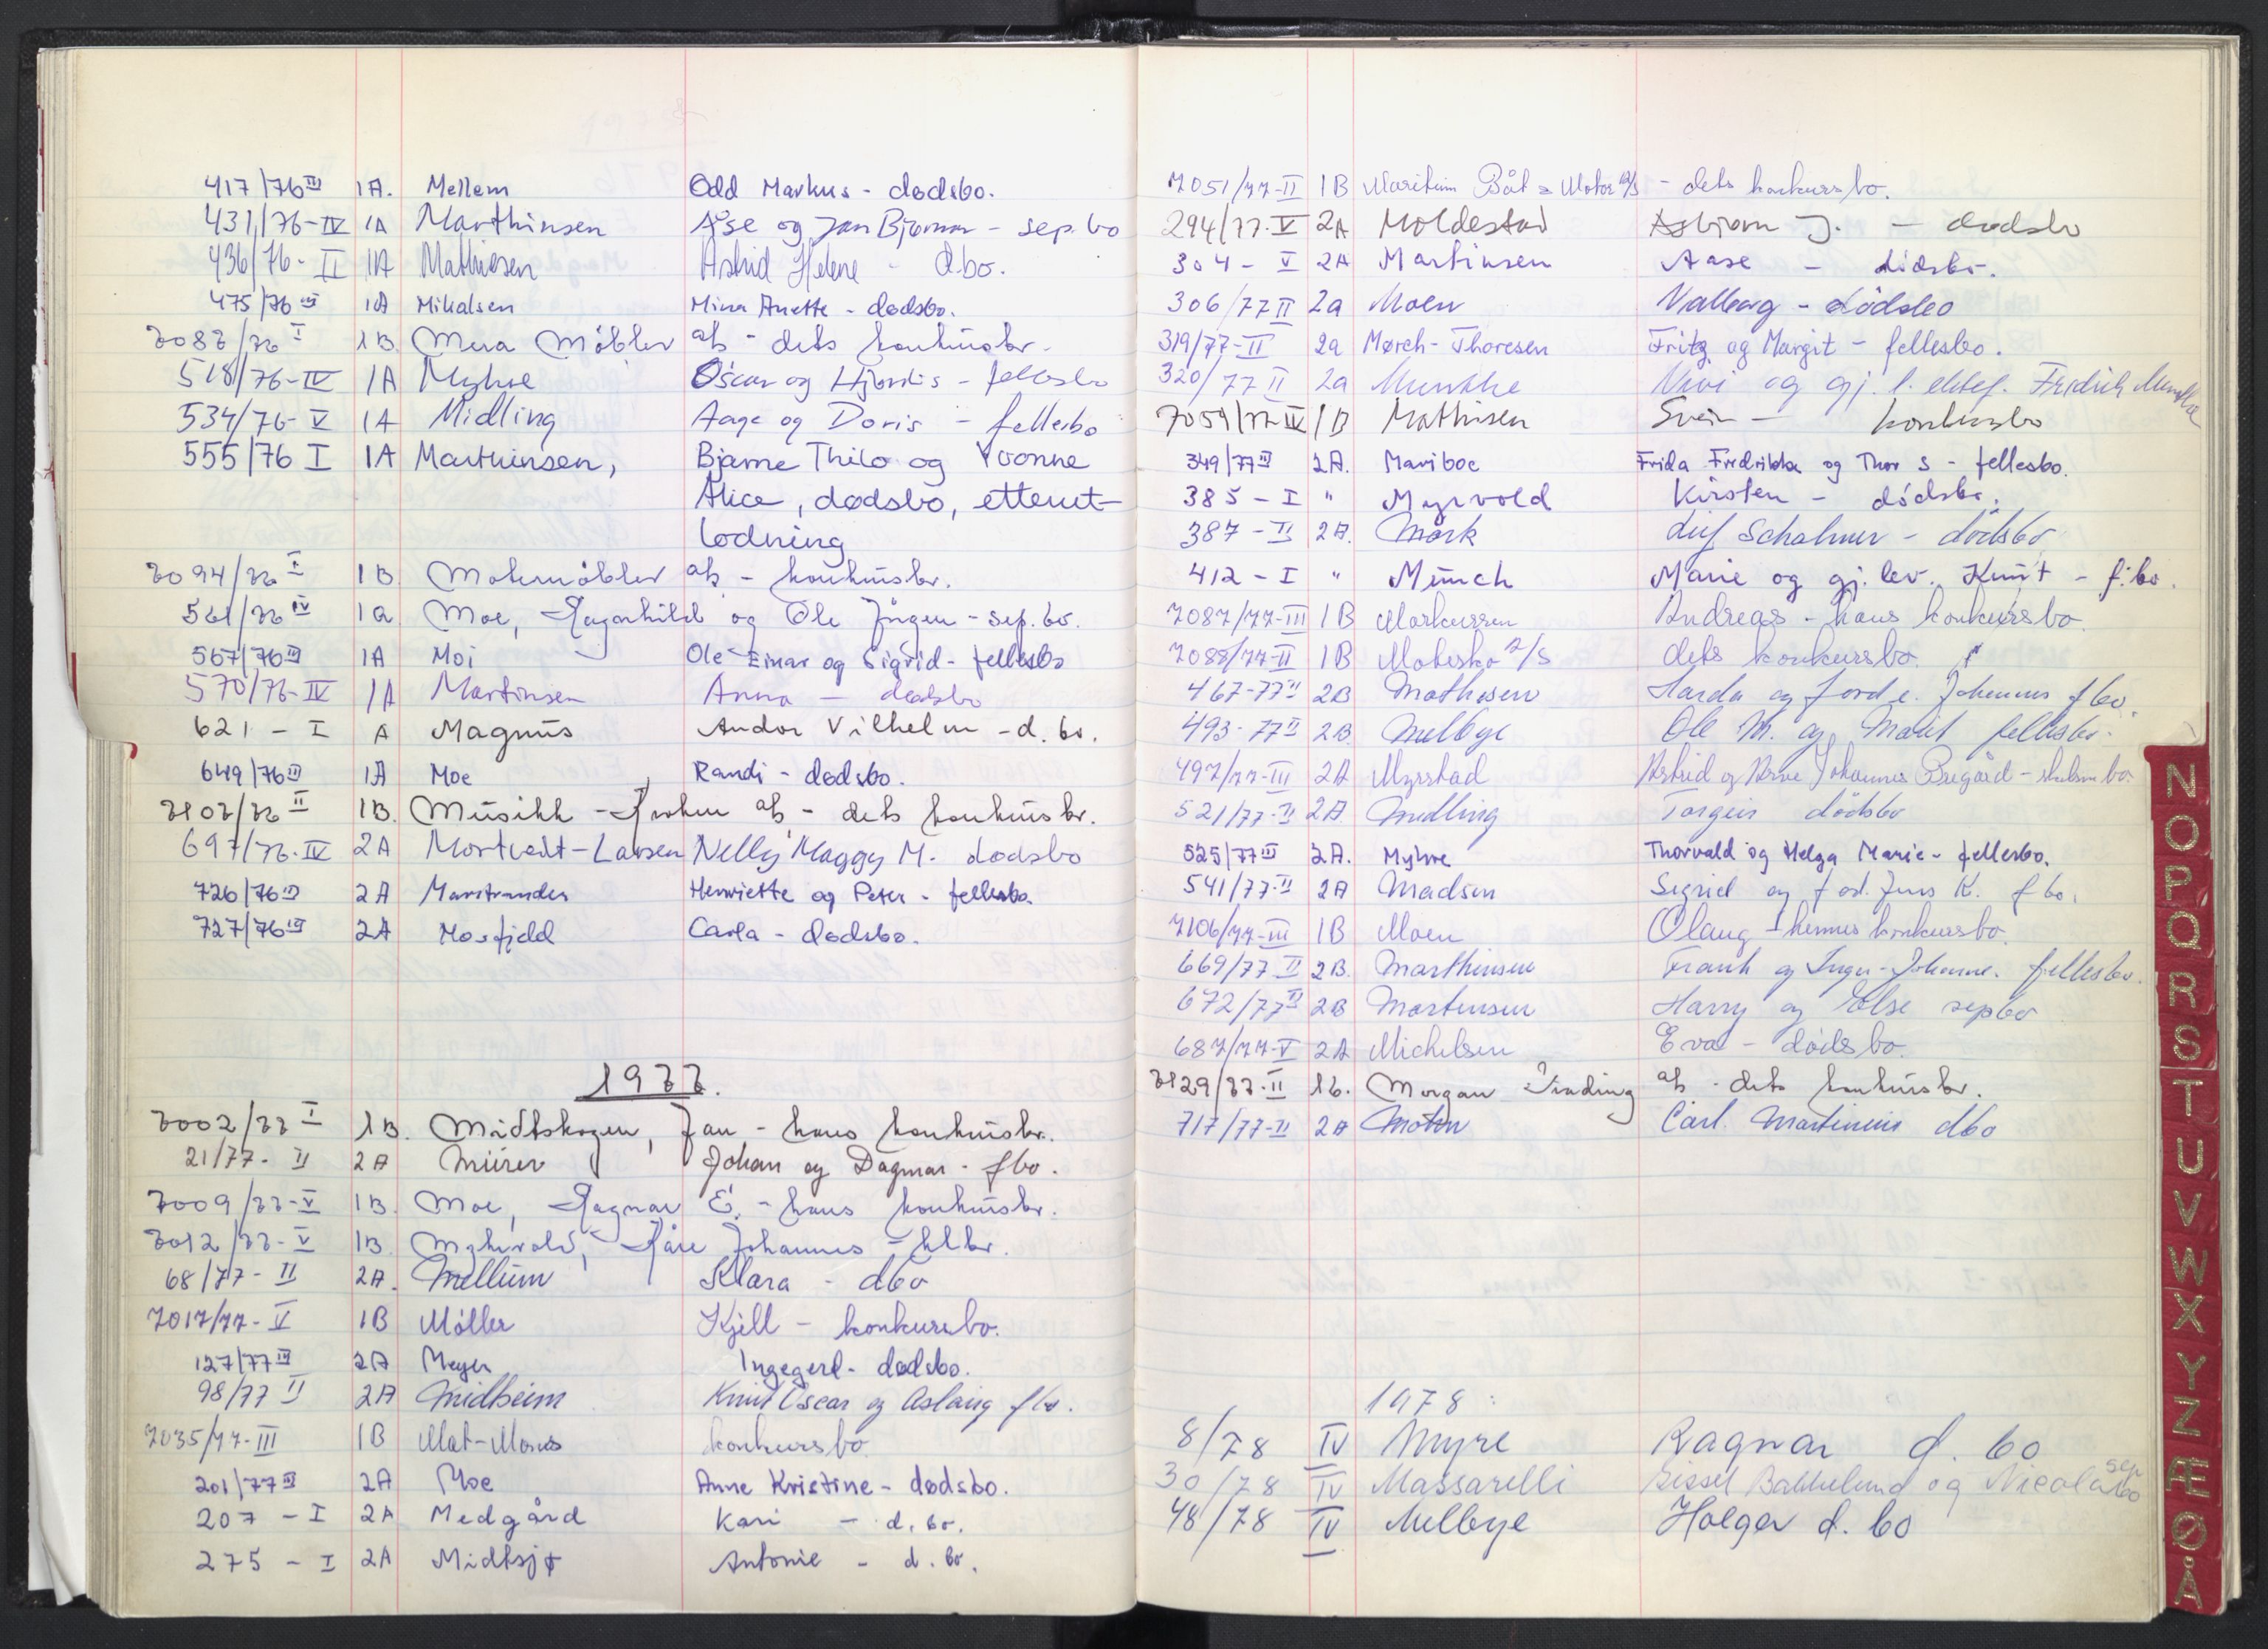 417/76 III 1A. Mellem Odd Markus - dødsbo.
431/76-IV 1A Marthinsen Åse og Jan Bjørnar - sep.bo
436/76-II 1A Mathiesen Astrid Helene - d.bo.
475/76 III 1A Mikalsen Mina Anette - dødsbo.
7087/76 I 1B. Mera Möbler a/s - dets konkursbo.
518/76-IV 1A Myhre Oscar og Hjørdis - fellesbo
534/76-V 1A Midling Aage og Doris - fellesbo
555/76 I 1A Marthinsen, Bjarne Thilo og Yvonne
Alice, dødsbo, etterut-
lodning
7094/76 I 1B. Møbler a/s - konkursbo.
561/76 IV 1a Moe, Ragnhild og Ole Jörgen - sep.bo.
567/76 III 1A Moi Ole Einar og Sigrid - fellesbo
570/76-IV 1A Martinsen Anna - dødsbo
621 - I A Magnus Andor Vilhelm - d.bo.
649/76 III 1A Moe Randi - dødsbo.
7107/76 II 1B. Musikk-Kroken a/s - dets konkursbo.
697/76-IV 2A Mortvedt-Larsen Nelly Maggy M. dødsbo
726/76 III 2A Marstrander Henriette og Peter - fellesbo.
727/76 III 2A Mosfjeld Carla - dødsbo.
1977.
7002/77 I 1B. Midtskogen, Jan - hans konkursbo.
21/77-II 2A Mürer Johan og Dagmar - fbo.
7009/77-V 1B. Moe, Ragnar E. - hans konkursbo.
7012/77-V 1B. Myhrvold, Kåre Johannes - kkbo.
68/77-II 2A. Mellum Klara - dbo
7017/77-V 1B Möller Kjell - konkursbo.
127/77 III 2A Meyer Ingegerd - dødsbo.
98/77 II 2A Midheim Knut Oscar og Aslaug fbo.
7035/77-III 1B Mat-Mons konkursbo
201/77 III 2A Moe Anne Kristine - dødsbo.
207 - I 2A Medgård Kari - d.bo.
275 - I 2A Midtsjø Antonie - d.bo.
7051/77-II 1B Maritim Båt & Motor A/S - dets konkursbo.
294/77-V 2A Moldestad Asbjørn J. - dødsbo
304 - V 2A Martinsen Aase - dødsbo.
306/77 II 2a Moen Valborg - dödsbo
319/77-II 2a Mørch-Thoresen Fritz og Margit - fellesbo.
320/77 II 2a Munthe Vivi og gj.l. ektef. Fredrik Munthe
7059/77-IV 1B Mathisen Svein - konkursbo
349/77 III 2A. Mariboe Frida Fredrikke og Thor S - fellesbo.
385 - I " Myrvold Kirsten - dödsbo.
387 - II 2A. Mörk Leif - dödsbo
412 - I " Münch Marie og gj.lev. Knut - f.bo.
7087/77-III 1B Markussen Andreas - hans konkursbo.
7088/77-II 1B Motesko A/S dets konkursbo.
467-77 II 2B Mathisen Harda og ford.e. Johannes fbo.
493-77 II 2B. Melbye Ole M. og Marit fellesbo.
497/77-III 2A Myrstad Astrid og Arve Johannes Bregård -
521/77-II 2A Midling Torgeir dödsbo
525/77 III 2A. Myhre Thorvald og Helga Marie - fellesbo.
541/77-II 2A Madsen Sigrid og f.ad. Jens K. fbo.
7106/77-III 1B Moen Olaug - hennes konkursbo.
669/77 II 2B. Marthinsen Frank og Inger-Johanne. fellesbo.
672/77 II 2B Mortensen Harry og Else sepbo
687/77-V 2A Michelsen Eva - dødsbo.
7129/77-II 1b. Morgan Trading a/s - dets konkursbo.
717/77-II 2A Moten Carl Martinius dbo
1978:
8/78 IV Myre Ragnar d. bo
30/78 IV Massarelli Sissel Bakkelund og Nicola sep bo
48/78 IV Melbye Holger d. bo
N
O
P
Q
R
S
T
U
V
W
X
Y
Z
Æ
Ø
Å